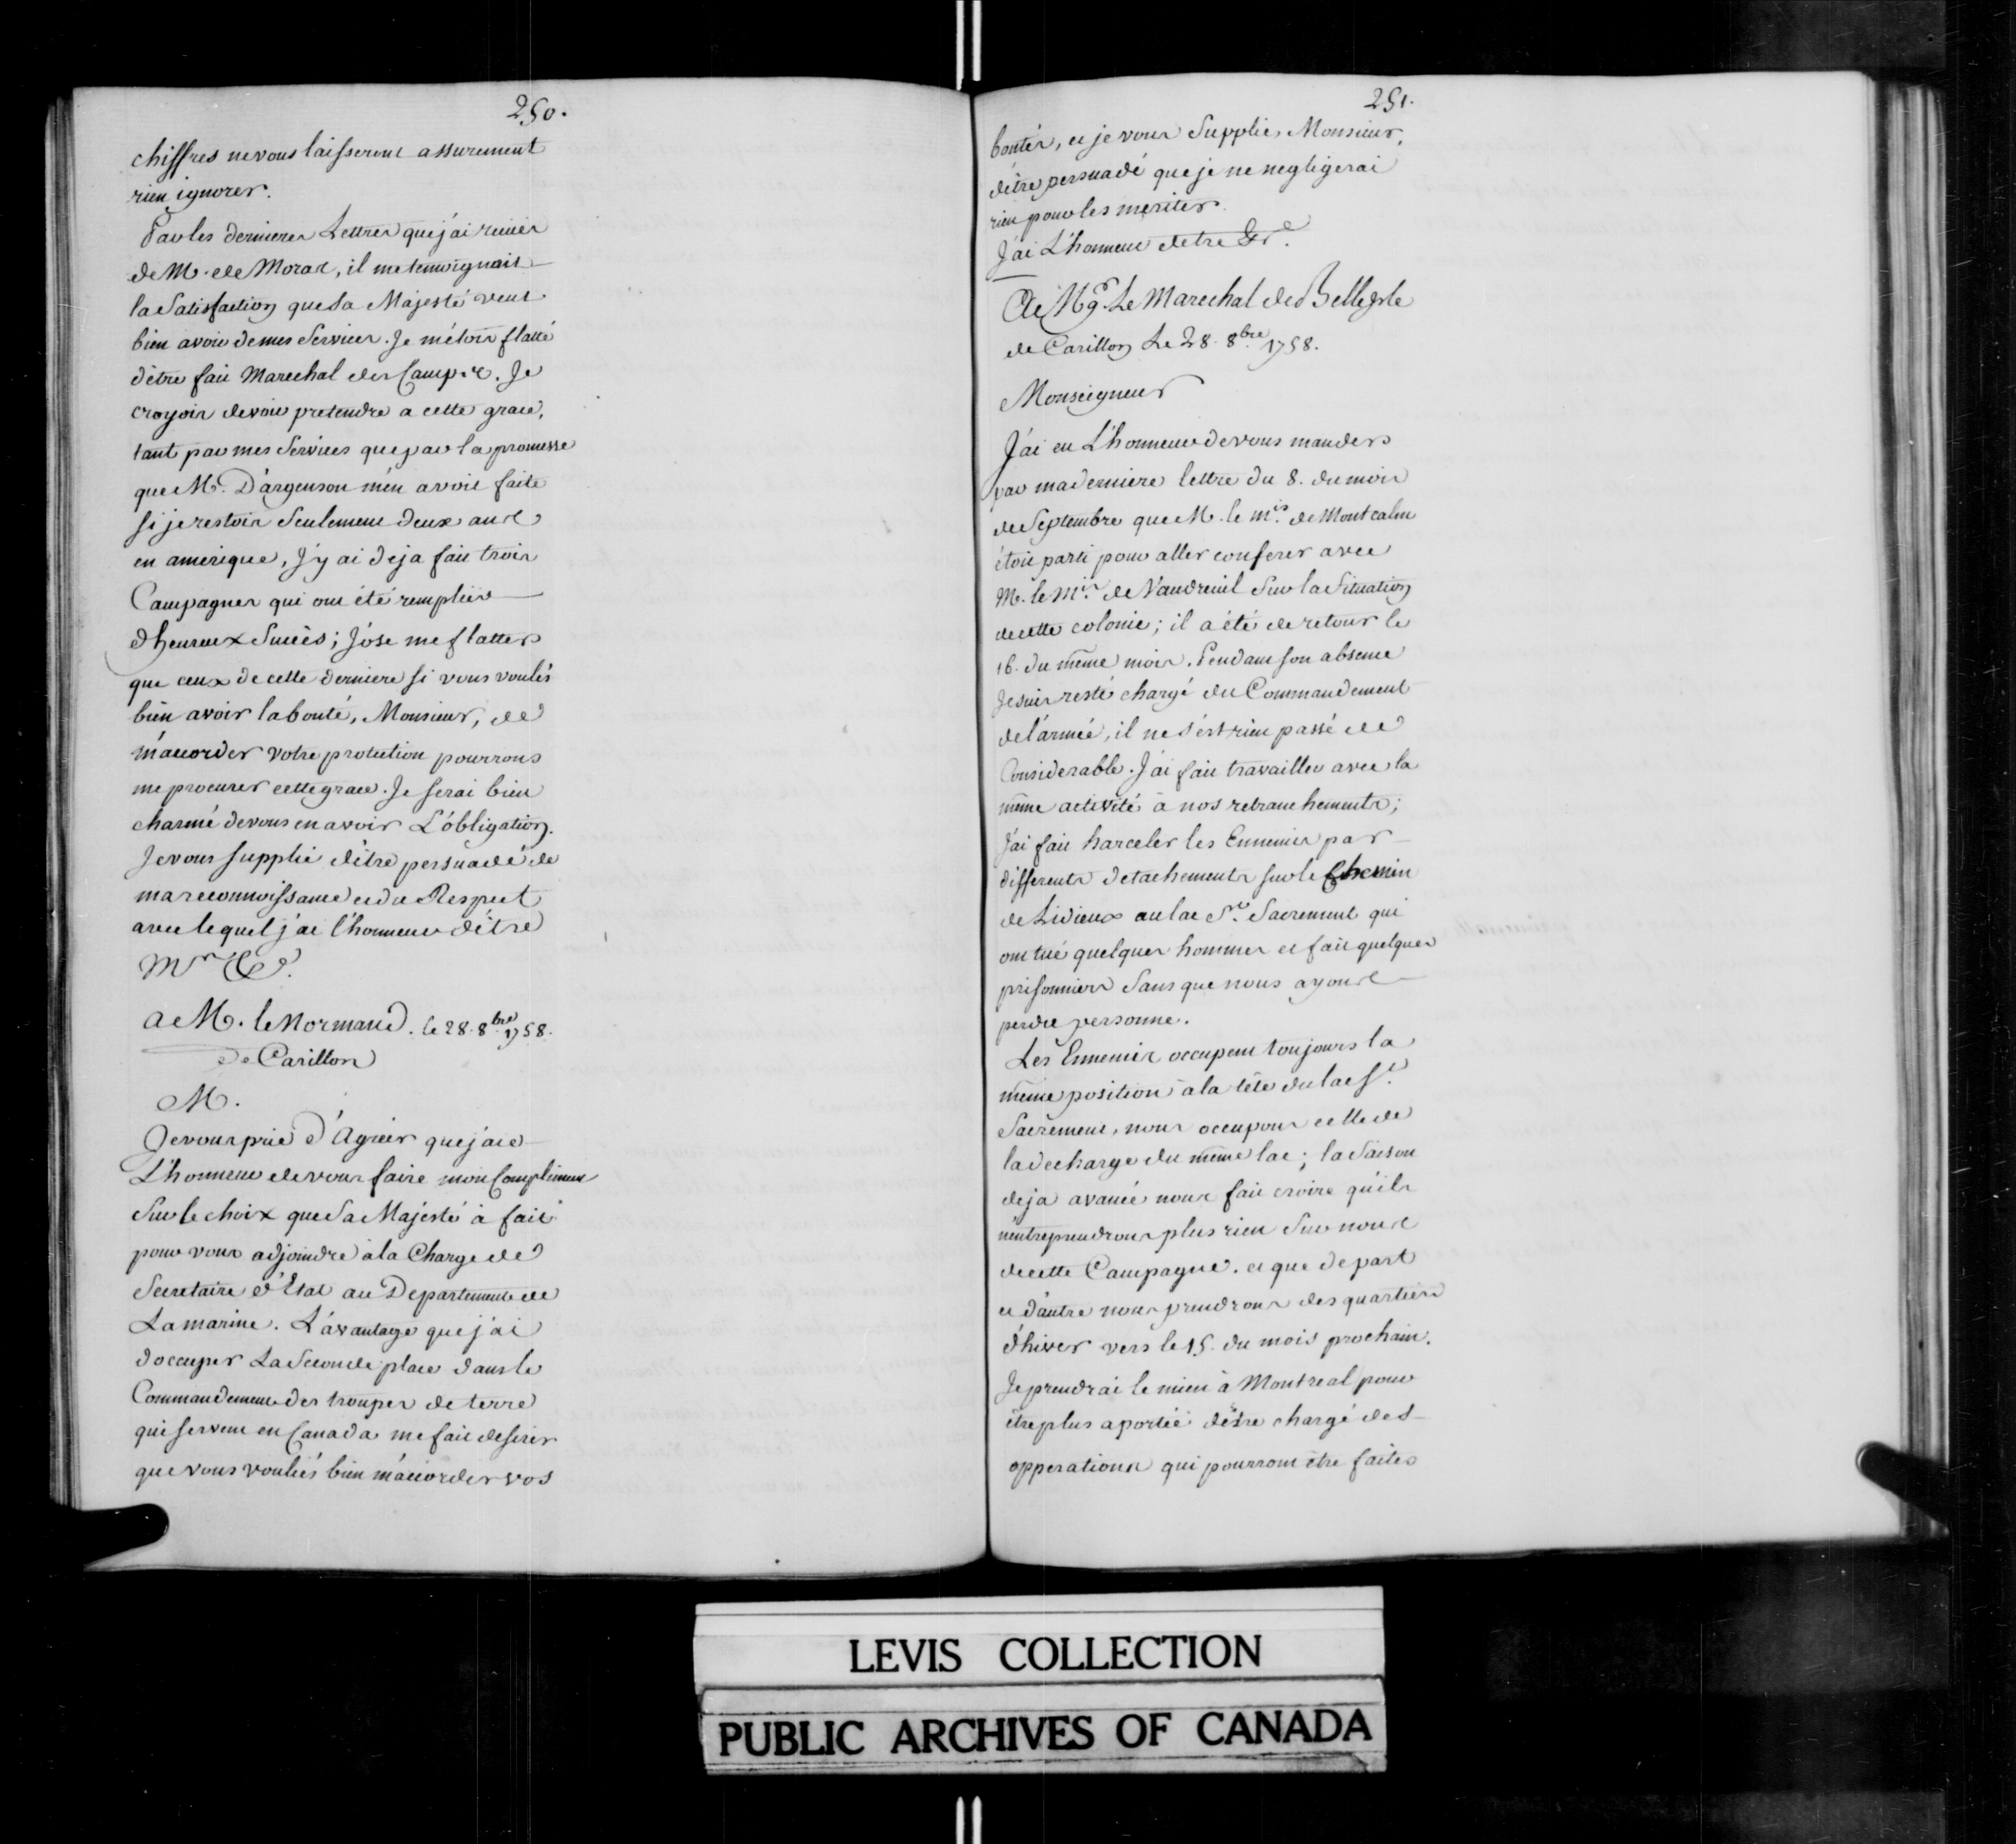 250.
chiffres ne vous laisseront assurement
rien ignorer.
Par les dernieres Lettres que j'ai reuües
de M. de Moras, il me temoignait
la Satisfaction que Sa Majesté veut
bien avoir de mes Services. Je m'étois flatté
d'être fait Marechal des Camps. Je
croyois devoir pretendre a cette grace,
tant par mes Services que par la promesse
que M. D'argenson m'en avoit faite
si je restois Seulement deux ans
en amerique, J'y ai deja fait trois
Campagnes qui ont été remplies
d'heureux Succès; J'ose me flatter
que ceux de cette derniere si vous voulés
bien avoir la bonté, Monsieur, de
m'accorder votre protection pourrons
me procurer cette grace. Je serai bien
charmé de vous en avoir L'obligation.
Je vous supplie d'être persuadé de
ma reconnoissance et du Respect
avec lequel j'ai l'honneur d'être
Mr &c.
a M. le Normand. le 28. 8bre 1758.
de Carillon
M.
Je vous prie d'Agréer que j'aie
L'honneur de vous faire mon Compliment
Sur le choix que Sa Majesté à fait
pour vous adjoindre à la Charge de
Secretaire d'Etat au Departement de
La marine. L'avantage que j'ai
d'occuper La Seconde place dans le
Commandement des troupes de terre
qui servent en Canada me fait desirer
que vous vouliés bien m'accorder vos
251.
bontés, et je vous Supplie, Monsieur,
d'être persuadé que je ne negligerai
rien pour les meriter.
J'ai L'honneur d'etre &c.
A Mgr. Le Marechal de Belleisle
de Carillon Le 28. 8bre 1758.
Monseigneur
J'ai eu L'honneur de vous mander
par ma derniere lettre du 8. du mois
de Septembre que M. le mis. de Montcalm
étoit parti pour aller conferer avec
M. le Mis. de Vaudreuil Sur la Situation
de cette colonie; il a été de retour le
16. du même mois. Pendant son absence
Je suis resté chargé du Commandement
de l'armée, il ne s'est rien passé de
Considerable. J'ai fait travailler avec la
même activité à nos retranchements;
J'ai fait harceler les Ennemis par
differents detachements sur le Chemin
de Lidieux au lac St. Sacrement qui
ont tué quelques hommes et fait quelques
prisonniers Sans que nous ayons
perdu personne.
Les Ennemis occupent toujours la
même position à la tête du lac St.
Sacrement, nous occupons celle de
la decharge du même lac; la Saison
deja avancée nous fait croire qu'ils
n'entreprendrons plus rien Sur nous
de cette Campagne. et que de part
et d'autre nous prendrons des quartiers
d'hiver vers le 15. du mois prochain.
Je prendrai le mien à Montreal pour
être plus a portée d'être chargé des
opperations qui pourront être faites
LEVIS COLLECTION
PUBLIC ARCHIVES OF CANADA